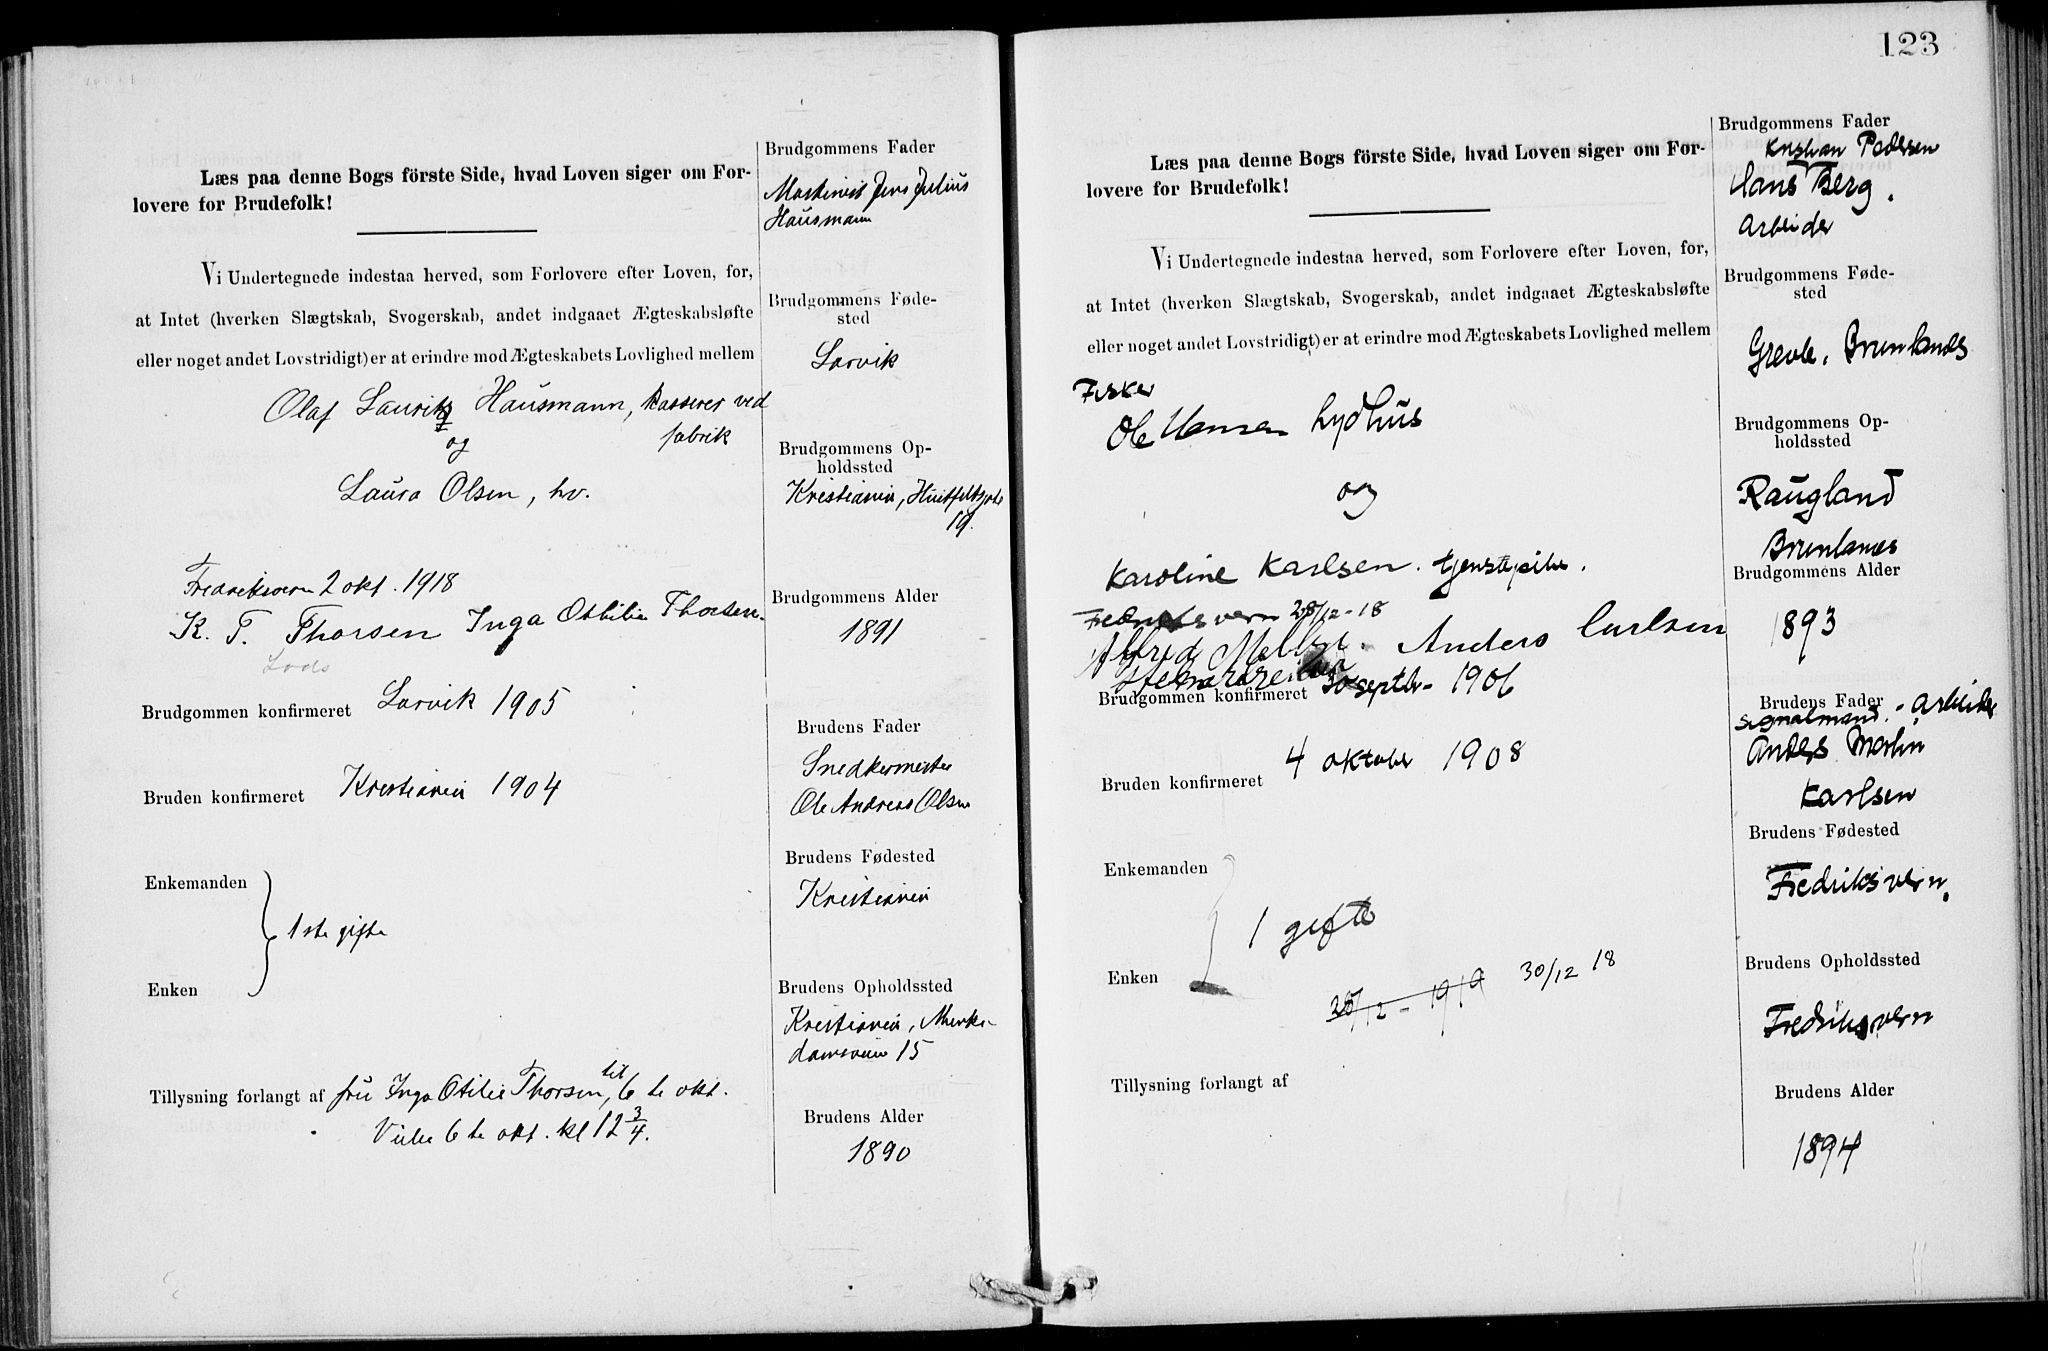 Læs paa denne Bogs förste Side, hvad Loven siger om For-
lovere for Brudefolk!
Vi Undertegnede indestaa herved, som Forlovere efter Loven, for,
at Intet (hverken Slægtskab, Svogerskab, andet indgaaet Ægteskabsløfte
eller noget andet Lovstridigt) er at erindre mod Ægteskabets Lovlighed mellem
Olaf Lauritz Hausmann, kasserer ved
fabrik
og
Laura Olsen, hv.
Fredriksvern 2 okt. 1918
K. T. Thorsen Inga Othilie Thorsen.
Lods
Brudgommen konfirmeret Larvik 1905
Bruden konfirmeret Kristiania 1904
Enkemanden
1ste gifte
Enken
Tillysning forlangt af fru Inga Otilie Thorsen, til 6te okt.
Vielse 6te okt. kl 12 3/4.
Brudgommens Fader
Maskinist Jens Julius
Hausmann
Brudgommens Føde-
sted
Larvik
Brudgommens Op-
holdssted
Kristiania, Huitfeltsgate
19.
Brudgommens Alder
1891
Brudens Fader
Snedkermester
Ole Andreas Olsen
Brudens Fødested
Kristiania
Brudens Opholdssted
Kristiania, Munke-
damsveien 15
Brudens Alder
1890
123
Læs paa denne Bogs förste Side, hvad Loven siger om For-
lovere for Brudefolk!
Vi Undertegnede indestaa herved, som Forlovere efter Loven, for,
at Intet (hverken Slægtskab, Svogerskab, andet indgaaet Ægteskabsløfte
eller noget andet Lovstridigt) er at erindre mod Ægteskabets Lovlighed mellem
Fisker
Ole Hansen Lydhus
og
Karoline Karlsen. tjenestepike.
Fredriksvern 28/12-18
Alfred Anders Carlsen
Brudgommen konfirmeret septbr- 1906
Bruden konfirmeret 4 oktober 1908
Enkemanden
1 gifte
Enken
28/12-1919 30/12 18
Tillysning forlangt af
Brudgommens Fader
Kristian Pedersen
Hans Berg.
Arbeider
Brudgommens Føde-
sted
Grevle. Brunlanes
Brudgommens Op-
holdssted
Raugland
Brunlanes
Brudgommens Alder
1893
Brudens Fader
signalmand. - arbeider
Anders Martin
Karlsen
Brudens Fødested
Fredriksvern.
Brudens Opholdssted
Fredriksvern
Brudens Alder
1894